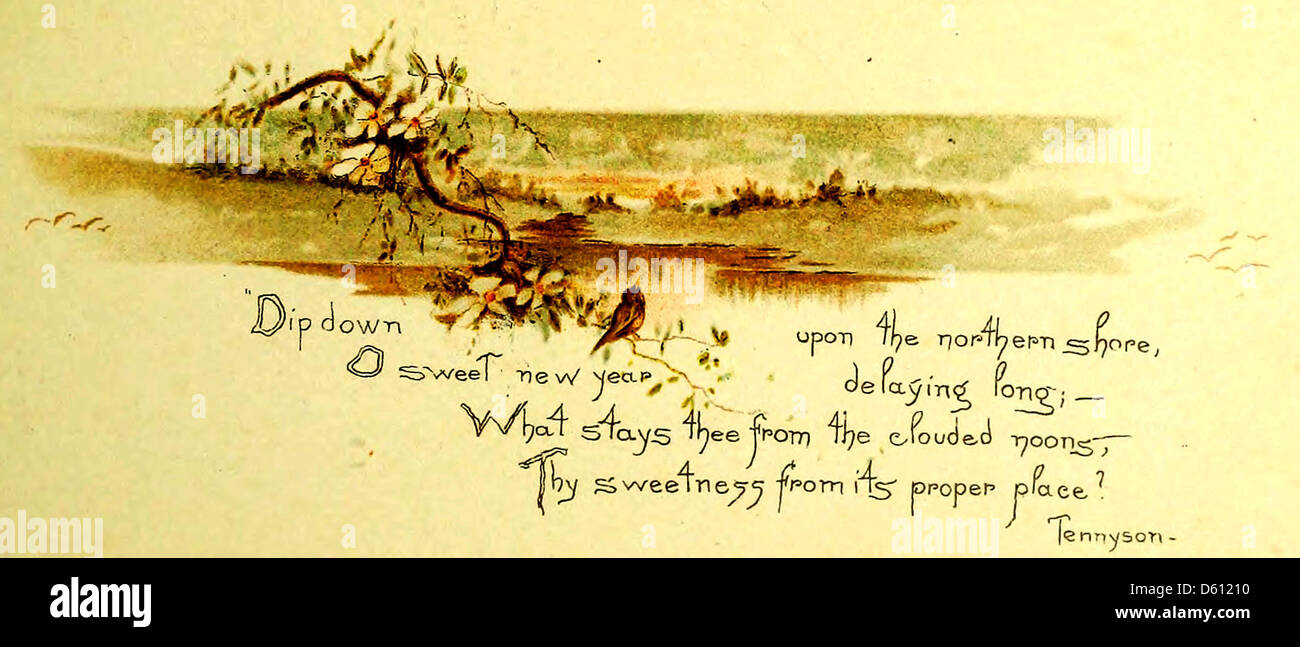 "Dip down upon the northern shore,
O sweet new year delaying long; —
What stays thee from the clouded noons, —
Thy sweetness from its proper place?
Tennyson -
alamy
Image ID: D61210
www.alamy.com